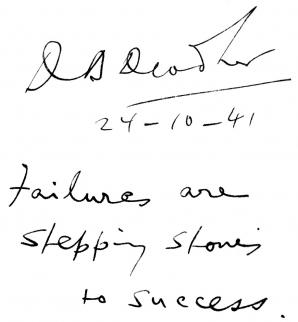 D B Deodhar
24-10-41
Failures are
stepping stones
to success.